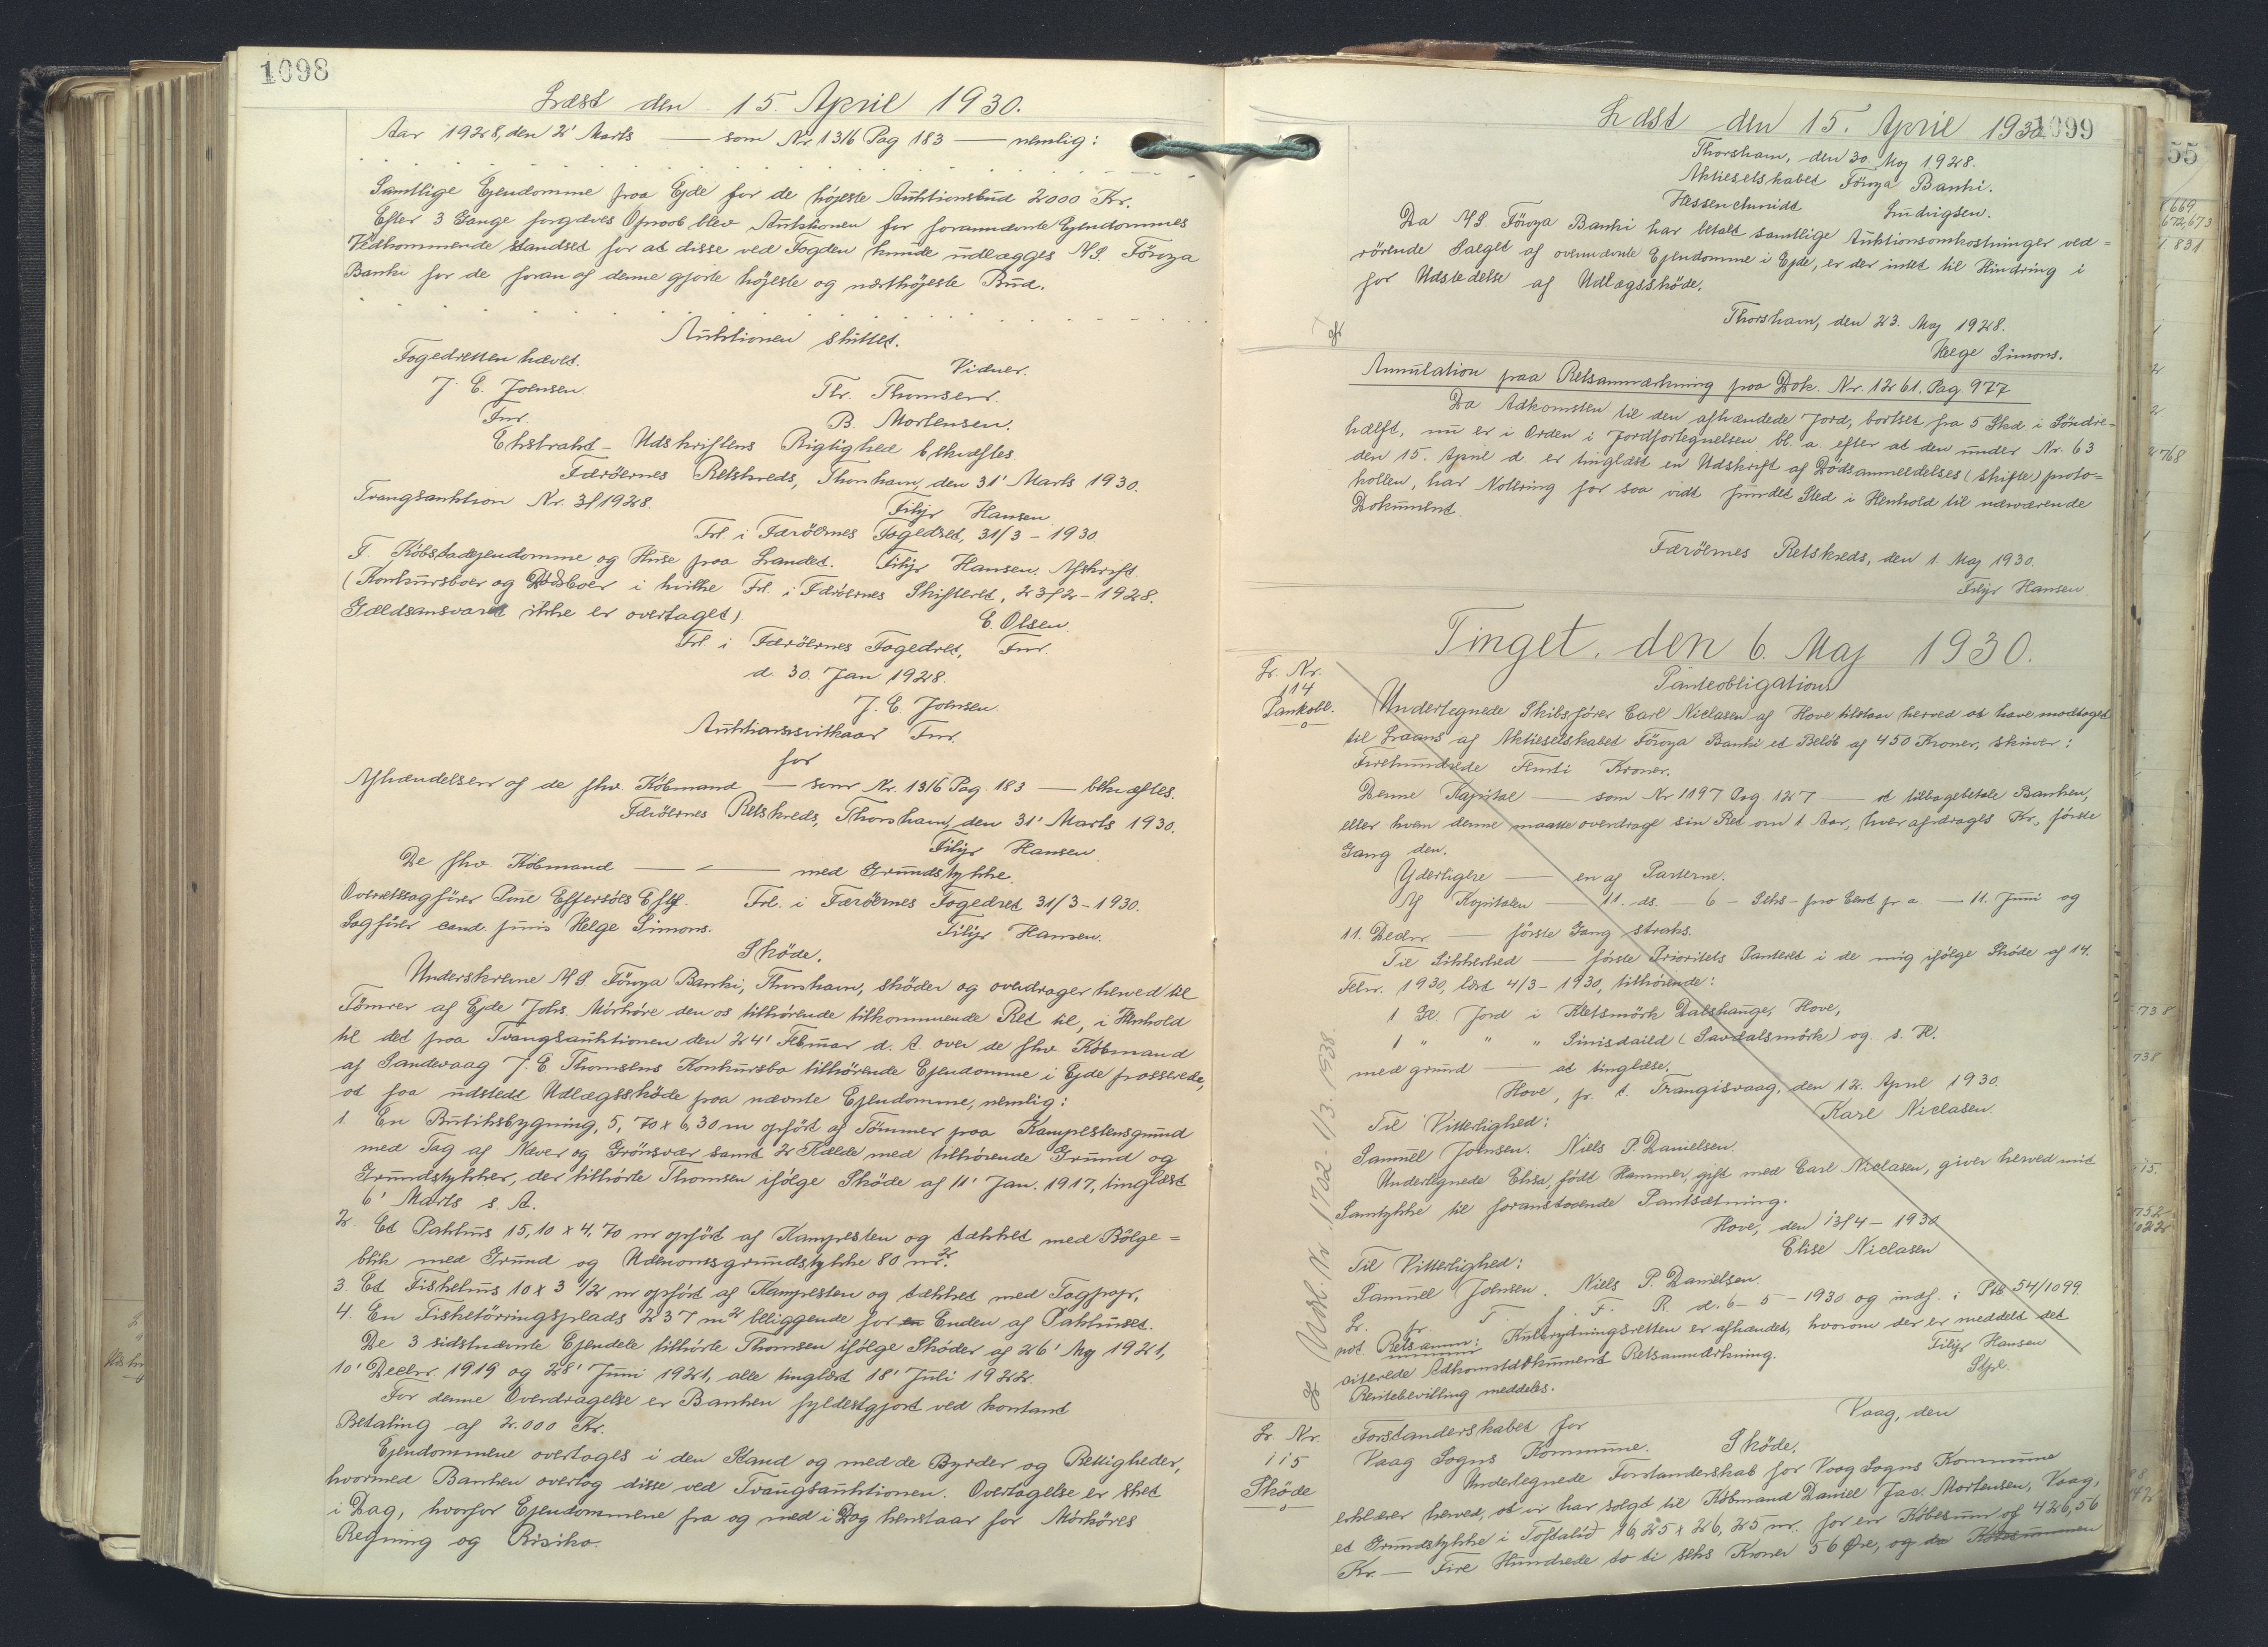 1098
Læst den 15. April 1930.
Aar 1928, den 2' Marts — som Nr. 1316 Pag 183 — nemlig:
Samtlige Ejendomme paa Ejde for de højeste Auktionsbud 2000 Kr.
Efter 3 Gange forgæves Opraab blev Auktionen for forannævnte Ejendommes
Vedkommende standset for at disse ved Fogden kunde udlægges A/S. Föroya
Banki for de foran af denne gjorte højeste og næsthöjeste Bud.
Auktionen sluttet.
Fogedretten hævet.
Vidner.
J. C. Joensen
Thr. Thomsen.
Fmr.
B. Mortensen.
Ekstrakt-Udskriftens Rigtighed bekræftes.
Færöernes Retskreds, Thorshavn, den 31' Marts 1930.
Tvangsauktion Nr. 3/1928.
Filip Hansen
Frl. i Færöernes Fogedret, 31/3 - 1930.
F. Köbstadejendomme og Huse paa Landet. Filip Hansen. Afskrift.
(Konkursboer og Dødsboer i hvilke Frl. i Færöernes Skifteret, 23/2 - 1928.
Gældsansvaret ikke er overtaget).
E. Olsen.
Frl i Færöernes Fogedret, Fmr.
d. 30. Jan 1928.
J. C. Joensen.
Auktionsvilkaar Fmr.
for
Afhændelsen af de fhv. Köbmand — som Nr. 1316 Pag. 183 — bekræftes.
Færöernes Retskreds, Thorshavn, den 31' Marts 1930.
Filip Hansen.
De fhv. Köbmand — — med Grundstykke.
Overretssagförer Poul Effersöes Eftf. Frl. i Færöernes Fogedret 31/3 - 1930.
Sagförer cand. juris Helge Simons.
Filip Hansen.
Sköde.
Underskrevne A/S. Föroya Banki, Thorshavn, sköder og overdrager herved til
Tömrer af Ejde Johs. Mórköre den os tilhörende tilkommende Ret til, i Henhold
til det paa Tvangsauktionen den 24' Februar d. A. over de fhv. Köbmand
af Sandevaag J. C. Thomsens Konkursbo tilhörende Ejendomme i Ejde passerede,
at faa udstedt Udlægssköde paa nævnte Ejendomme, nemlig:
1. En Butiksbygning, 5,70 x 6,30 m opfört af Tömmer paa Kampestensgrund
med Tag af Næver og Grönsvær samt 2 Kælde med tilhörende Grund og
Grundstykker, der tilhörte Thomsen ifölge Sköde af 11' Jan. 1917, tinglæst
6' Marts s. A.
2. Et Pakhus 15,10 x 4,70 m opfört af Kampesten og tækket med Bölge=
blik med Grund og Udenomsgrundstykke 80 m².
3. Et Fiskehus 10 x 3 1/2 m opfört af Kampesten og tækket med Tagpap.
4. En Fisketörringsplads 237 m² beliggende for en Enden af Pakhuset.
De 3 sidstnævnte Ejendele tilhörte Thomsen ifölge Sköder af 26' Maj 1921,
10' Decbr. 1919 og 28' Juni 1921, alle tinglæst 18' Juli 1922.
For denne Overdragelse er Banken fyldestgjort ved kontant
Betaling af 2.000 Kr.
Ejendommene overtages i den Stand og med de Byrder og Rettigheder,
hvormed Banken overtog disse ved Tvangsauktionen. Overtagelse er sket
i Dag, hvorfor Ejendommene fra og med i Dag henstaar for Mórköres
Regning og Risiko.
1099
Læst den 15. April 1930
Thorshavn, den 30 Maj 1928.
Aktieselskabet Föroya Banki.
Hessenschmidt Ludvigsen.
Da A/S. Föroya Banki har betalt samtlige Auktionsomkostninger ved=
rörende Salget af ovennævnte Ejendomme i Ejde, er der intet til Hindring i
for Udstedelse af Udlægssköde.
Thorshavn, den 23. Maj 1928.
Helge Simons.
Annulation paa Retsanmærkning paa Dok. Nr. 1261. Pag 977
Da Adkomsten til den afhændede Jord, bortset fra 5 Skd i Söndre=
hælft, nu er i Orden i Jordfortegnelsen bl. a. efter at den under Nr. 63
den 15. April d. er tinglæst en Udskrift af Dödsanmeldelses (skifte) proto=
kollen, har Notering for saa vidt fundet Sted i Henhold til nærværende
Dokument.
Færöernes Retskreds, den 1. Maj 1930.
Filip Hansen.
Tinget, den 6. Maj 1930.
Lr. Nr.
114
Pantobl.
Panteobligation
Undertegnede Skibsförer Carl Niclasen af Hove tilstaar herved at have modtaget
til Laans af Aktieselskabet Föroya Banki et Belöb af 450 Kroner, skriver:
Firehundrede Femti Kroner.
Denne Kapital — som Nr 1197 Pag. 127 — at tilbagebetale Banken,
eller hvem denne maatte overdrage sin Ret om 1 Aar, hver afdrages Kr., förste
Gang den.
Yderligere — en af Parterne.
Af Kapitalen — 11. ds. — 6 - Seks - pro Cent pr. a. — 11. Juni og
11. Decbr — förste Gang straks.
Til Sikkerhed — förste Prioritets Panteret i de mig ifölge Sköde af 14.
Febr. 1930, læst 4/3 - 1930, tilhörende:
1 Gl. Jord i Kletsmörk Dalshauge, Hove,
1 " " " Sinisdalid (Savdalsmörk) og s. H.
med grund — at tinglæse.
Hove, pr. t. Trangisvaag, den 12. April 1930.
Til Vitterlighed:
Karl Niclasen.
Samuel Joensen. Niels P. Danielsen.
Undertegnede Elisa, födt Hammer, gift med Carl Niclasen, giver herved mit
Samtykke til foranstaaende Pantsætning.
Hove, den 13/4 - 1930
Elise Niclasen
Til Vitterlighed:
Samuel Joensen. Niels P. Danielsen.
Lr. fr. T. f. F. R. d. 6 - 5 - 1930 og indf. i Ptb 54/1099
not Retsanm: Kulbrydningsretten er afhændet, hvorom der er meddelt det
citerede Adkomstdokument Retsanmærkning.
Filip Hansen
Rentebevilling meddeles.
Stfr.
Lr. Nr.
115
Sköde
Forstanderskabet for
Vaag Sogns Kommune.
Vaag, den
Sköde.
Undertegnede Forstanderskab for Vaag Sogns Kommune
erklærer herved, at vi har solgt til Köbmand Daniel Jac. Mortensen, Vaag,
et Grundstykke i Toftalid 16,25 x 26,25 m. for en Köbesum af 426,56
Kr. — Fire Hundrede to ti seks Kroner 56 Øre, og da Köbesummen